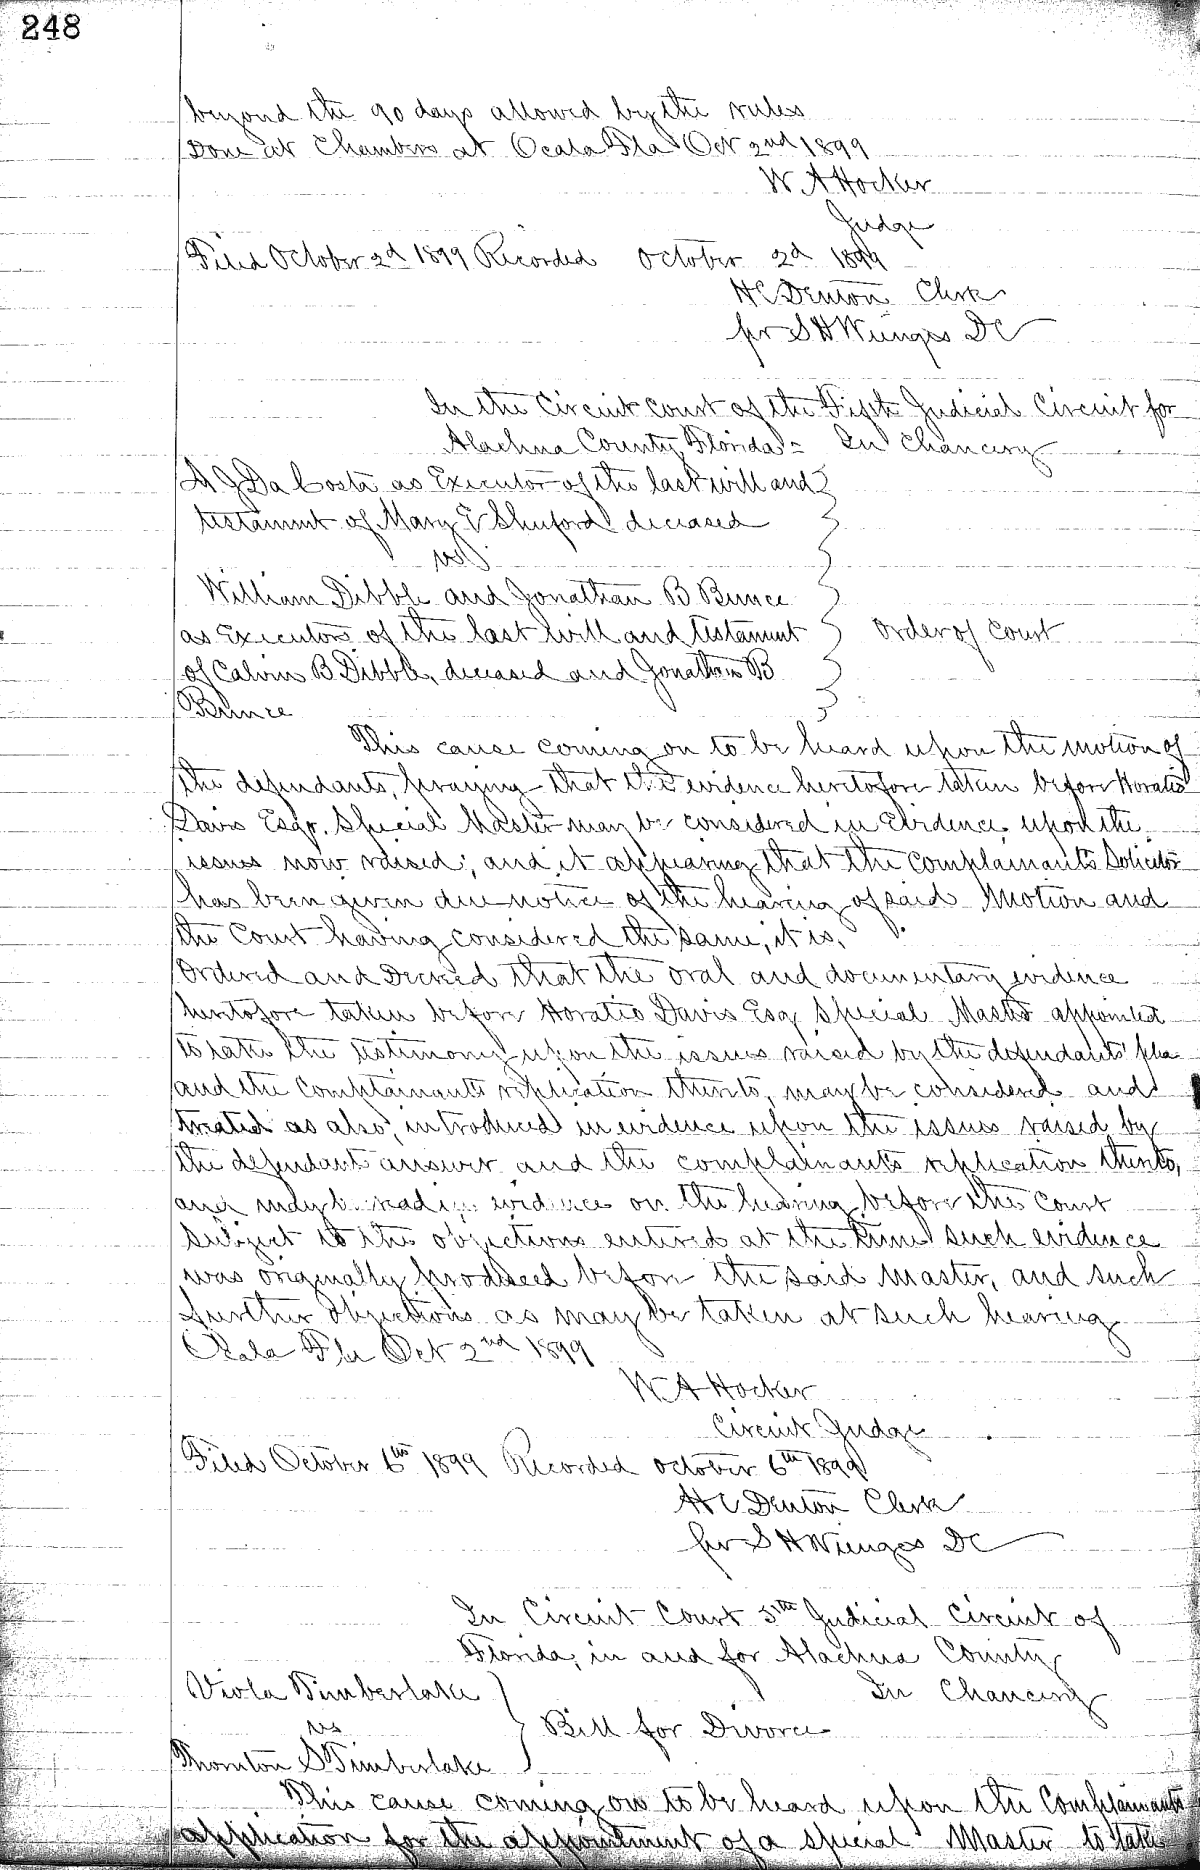 248
beyond the 90 days allowed by the rules
Done at Chambers at Ocala Fla Oct 2nd 1899
W A Hocker
Judge
Filed October 2d 1899 Recorded October 2d 1899
H C Denton Clerk
per S H Wienges DC
In the Circuit Court of the Fifth Judicial Circuit for
Alachua County, Florida = In Chancery
A J Da Costa as Executor of the last will and
testament of Mary E Shuford deceased
vs
William Dibble and Jonathan B Bunce
as Executors of the last will and testament
of Calvin B Dibble, deceased and Jonathan B
Bunce
Order of Court
This cause coming on to be heard upon the motion of
the defendants, praying that the evidence heretofore taken before Horatio
Davis Esqr. Special Master may be considered in Evidence upon the
issues now raised; and it appearing that the complainants Solicitor
has been given due notice of the hearing of said Motion and
the Court having considered the same, it is,
Ordered and Decreed that the oral and documentary evidence
heretofore taken before Horatio Davis Esq Special Master appointed
to take the testimony upon the issues raised by the defendants' plea
and the Complainants replication thereto, may be considered and
treated as also, introduced in evidence upon the issues raised by
the defendant answer and the complainants replication thereto,
and may be read in evidence on the hearing before the Court
Subject to the objections entered at the time such evidence
was originally produced before the said Master, and such
further objections as may be taken at such hearing
Ocala Fla Oct 2nd 1899
W A Hocker
Circuit Judge
Filed October 6th 1899 Recorded October 6th 1899
H C Denton Clerk
per S H Wienges DC
In Circuit Court 5th Judicial Circuit of
Florida, in and for Alachua County
In Chancery
Viola Timberlake
vs
Thornton S Timberlake
Bill for Divorce
This cause coming on to be heard upon the Complainants
application for the appointment of a special Master to take